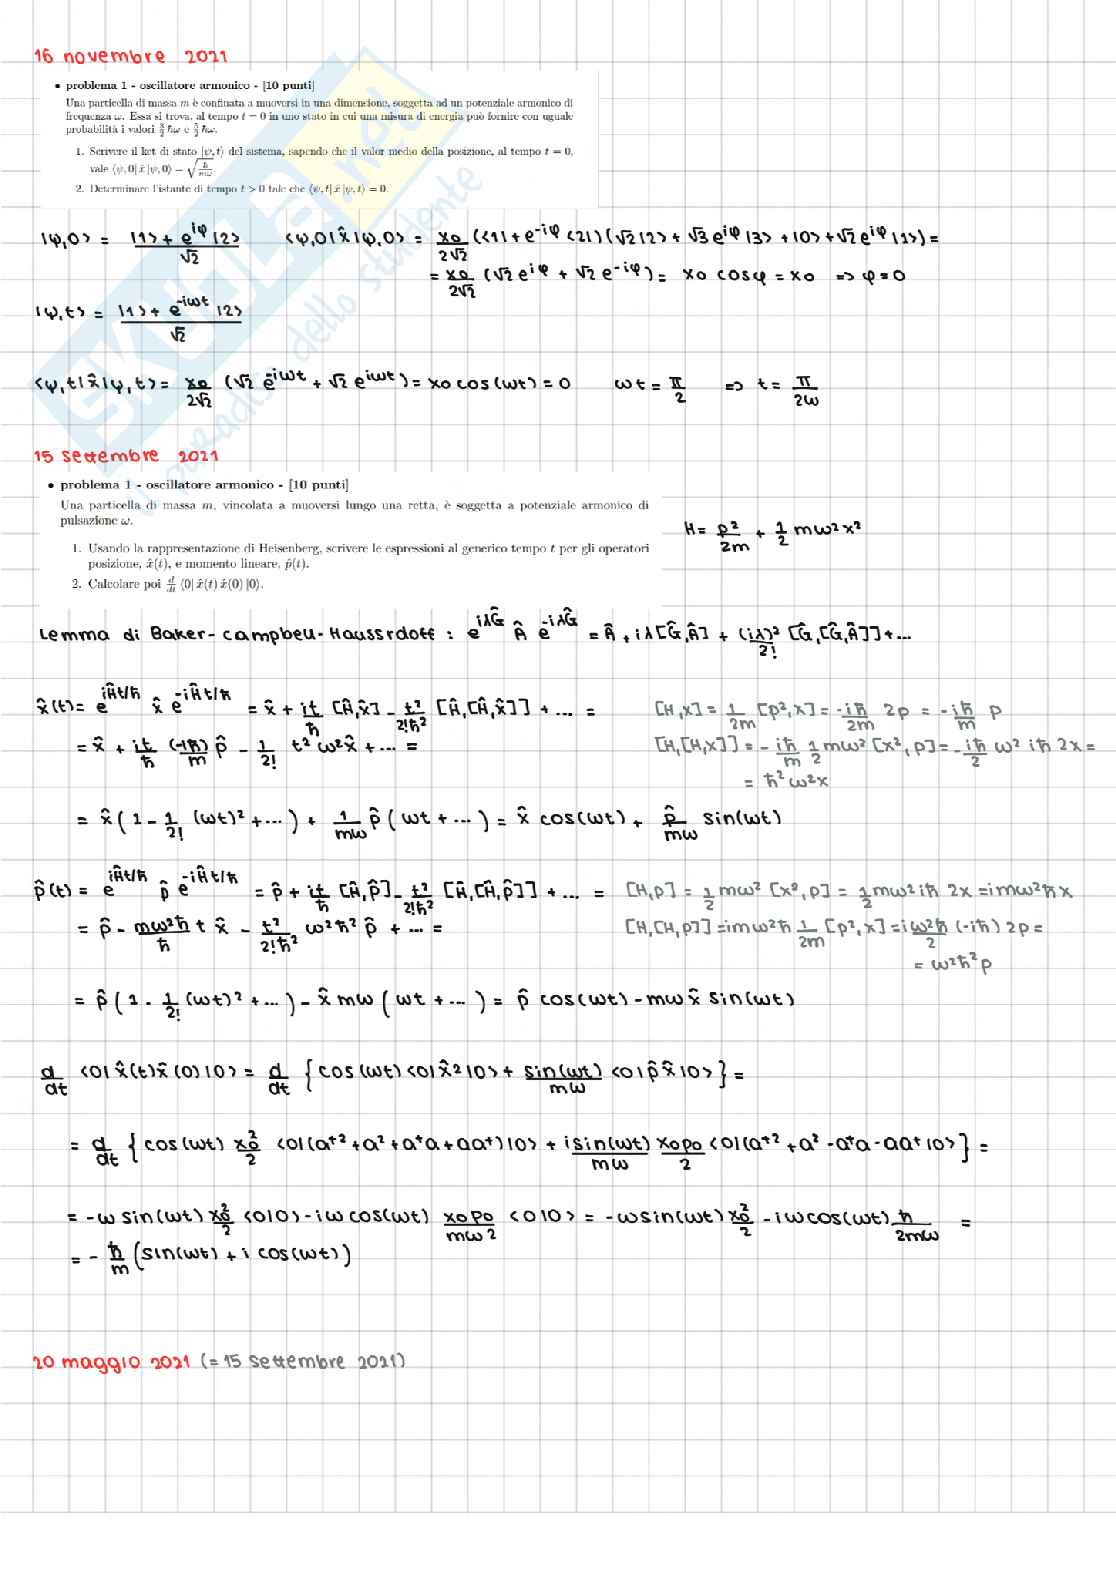 16 novembre 2021
• problema 1 - oscillatore armonico - [10 punti]
Una particella di massa m è confinata a muoversi in una dimensione, soggetta ad un potenziale armonico di
frequenza ω. Essa si trova, al tempo t = 0 in uno stato in cui una misura di energia può fornire con uguale
probabilità i valori 3/2 ħω e 5/2 ħω.
1. Scrivere il ket di stato |ψ, t⟩ del sistema, sapendo che il valor medio della posizione, al tempo t = 0,
vale ⟨ψ, 0| x̂ |ψ, 0⟩ = √(ħ/mω)
2. Determinare l'istante di tempo t > 0 tale che ⟨ψ, t| x̂ |ψ, t⟩ = 0.
|ψ,0> = (|1> + e^{iφ} |2>)/√2   <ψ,0|x̂|ψ,0> = x0/2√2 (<1| + e^{-iφ} <2|)(√2|2> + √3 e^{iφ} |3> + |0> + √2 e^{iφ} |1>) =
= x0/2√2 (√2 e^{iφ} + √2 e^{-iφ}) = x0 cosφ = x0 => φ = 0
|ψ,t> = (|1> + e^{-iωt} |2>)/√2
<ψ,t|x̂|ψ,t> = x0/2√2 (√2 e^{-iωt} + √2 e^{iωt}) = x0 cos(ωt) = 0   ωt = π/2 => t = π/2ω
15 settembre 2021
• problema 1 - oscillatore armonico - [10 punti]
Una particella di massa m, vincolata a muoversi lungo una retta, è soggetta a potenziale armonico di
pulsazione ω.
H = p²/2m + 1/2 mω²x²
1. Usando la rappresentazione di Heisenberg, scrivere le espressioni al generico tempo t per gli operatori
posizione, x̂(t), e momento lineare, p̂(t).
2. Calcolare poi d/dt ⟨0| x̂(t) x̂(0) |0⟩.
Lemma di Baker-Campbell-Haussrdoff: e^{iλĜ} Â e^{-iλĜ} = Â + iλ[Ĝ,Â] + (iλ)²/2! [Ĝ,[Ĝ,Â]] + ...
x̂(t) = e^{iĤt/ħ} x̂ e^{-iĤt/ħ} = x̂ + it/ħ [Ĥ,x̂] - t²/2!ħ² [Ĥ,[Ĥ,x̂]] + ... =   [H,x] = 1/2m [p²,x] = -iħ/2m 2p = -iħ/m p
= x̂ + it/ħ (-iħ)/m p̂ - 1/2! t²ω²x̂ + ... =   [H,[H,x]] = -iħ/m 1/2 mω² [x²,p] = -iħ/2 ω² iħ 2x =
= ħ²ω²x
= x̂(1 - 1/2! (ωt)² + ...) + 1/mω p̂(ωt + ...) = x̂ cos(ωt) + p̂/mω sin(ωt)
p̂(t) = e^{iĤt/ħ} p̂ e^{-iĤt/ħ} = p̂ + it/ħ [Ĥ,p̂] - t²/2!ħ² [Ĥ,[Ĥ,p̂]] + ... =   [H,p] = 1/2 mω² [x²,p] = 1/2 mω² iħ 2x = imω²ħx
= p̂ - mω²ħ/ħ t x̂ - t²/2!ħ² ω²ħ² p̂ + ... =   [H,[H,p]] = imω²ħ 1/2m [p²,x] = iω²ħ/2 (-iħ) 2p =
= ω²ħ²p
= p̂(1 - 1/2! (ωt)² + ...) - x̂mω(ωt + ...) = p̂ cos(ωt) - mωx̂ sin(ωt)
d/dt <0|x̂(t)x̂(0)|0> = d/dt {cos(ωt)<0|x̂²|0> + sin(ωt)/mω <0|p̂x̂|0>} =
= d/dt {cos(ωt) x0²/2 <0|(a⁺² + a² + a⁺a + aa⁺)|0> + i sin(ωt)/mω x0p0/2 <0|(a⁺² + a² - a⁺a - aa⁺|0>} =
= -ω sin(ωt) x0²/2 <0|0> - iω cos(ωt) x0p0/mω2 <0|0> = -ω sin(ωt) x0²/2 - iω cos(ωt) ħ/2mω =
= -ħ/m (sin(ωt) + i cos(ωt))
20 maggio 2021 (= 15 settembre 2021)
SKUOLA.net
il paradiso dello studente